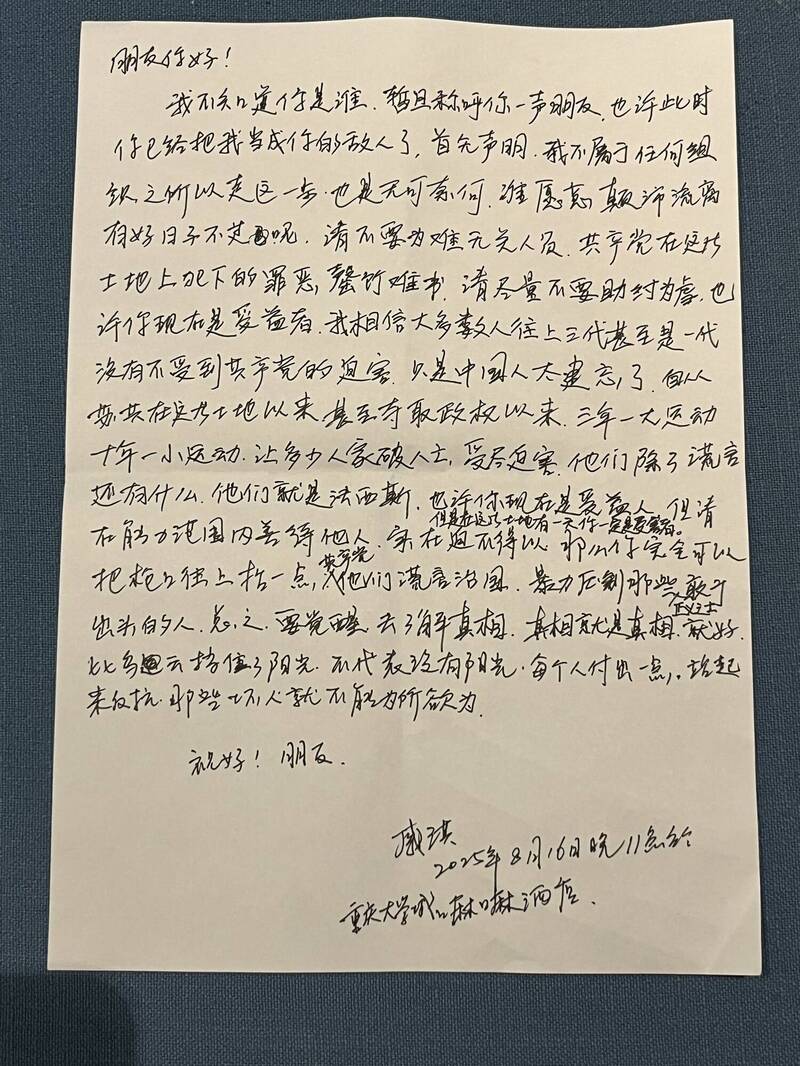 朋友你好！
我不知道你是谁.暂且称呼你一声朋友,也许此时
你已给把我当成你的敌人了,首先声明.我不属于任何组
织,之所以走这一步.也是无可奈何.谁愿意颠沛流离
有好日子不过呢.请不要为难无关人员.共产党在这片
土地上犯下的罪恶,罄竹难书.请尽量不要助纣为虐,也
许你现在是受益者.我相信大多数人往上三代甚至是一代
没有不受到共产党的迫害.只是中国人太健忘了.自从
苏共在这片土地以来,甚至夺取政权以来.三年一大运动
十年一小运动.让多少人家破人亡,受尽迫害.他们除了谎言
还有什么.他们就是法西斯.也许你现在是受益人.但请
但是在这片土地有一天你一定是受害者。
在能力范围内善待他人.实在迫不得以.那么你完全可以
把枪口往上抬一点,共产党他们谎言治国.暴力压制那些敢于
出头的人正义之士.总之.要觉醒.去了解真相.真相就是真相.就好
比乌云挡住了阳光.不代表没有阳光.每个人付出一点,.站起
来反抗.那些坏人就不能为所欲为.
祝好！朋友.
戚琪
2025年8月16日晚11点于
重庆大学城
酒店.